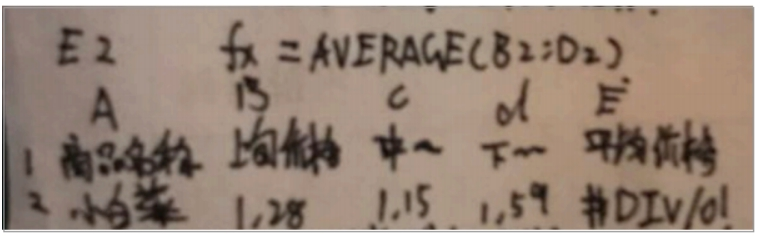 E2 fx =AVERAGE(B2:D2)
A B C d E
1 商品名称 上旬价格 中~ 下~ 平均价格
2 小白菜 1.28 1.15 1.59 #DIV/0!